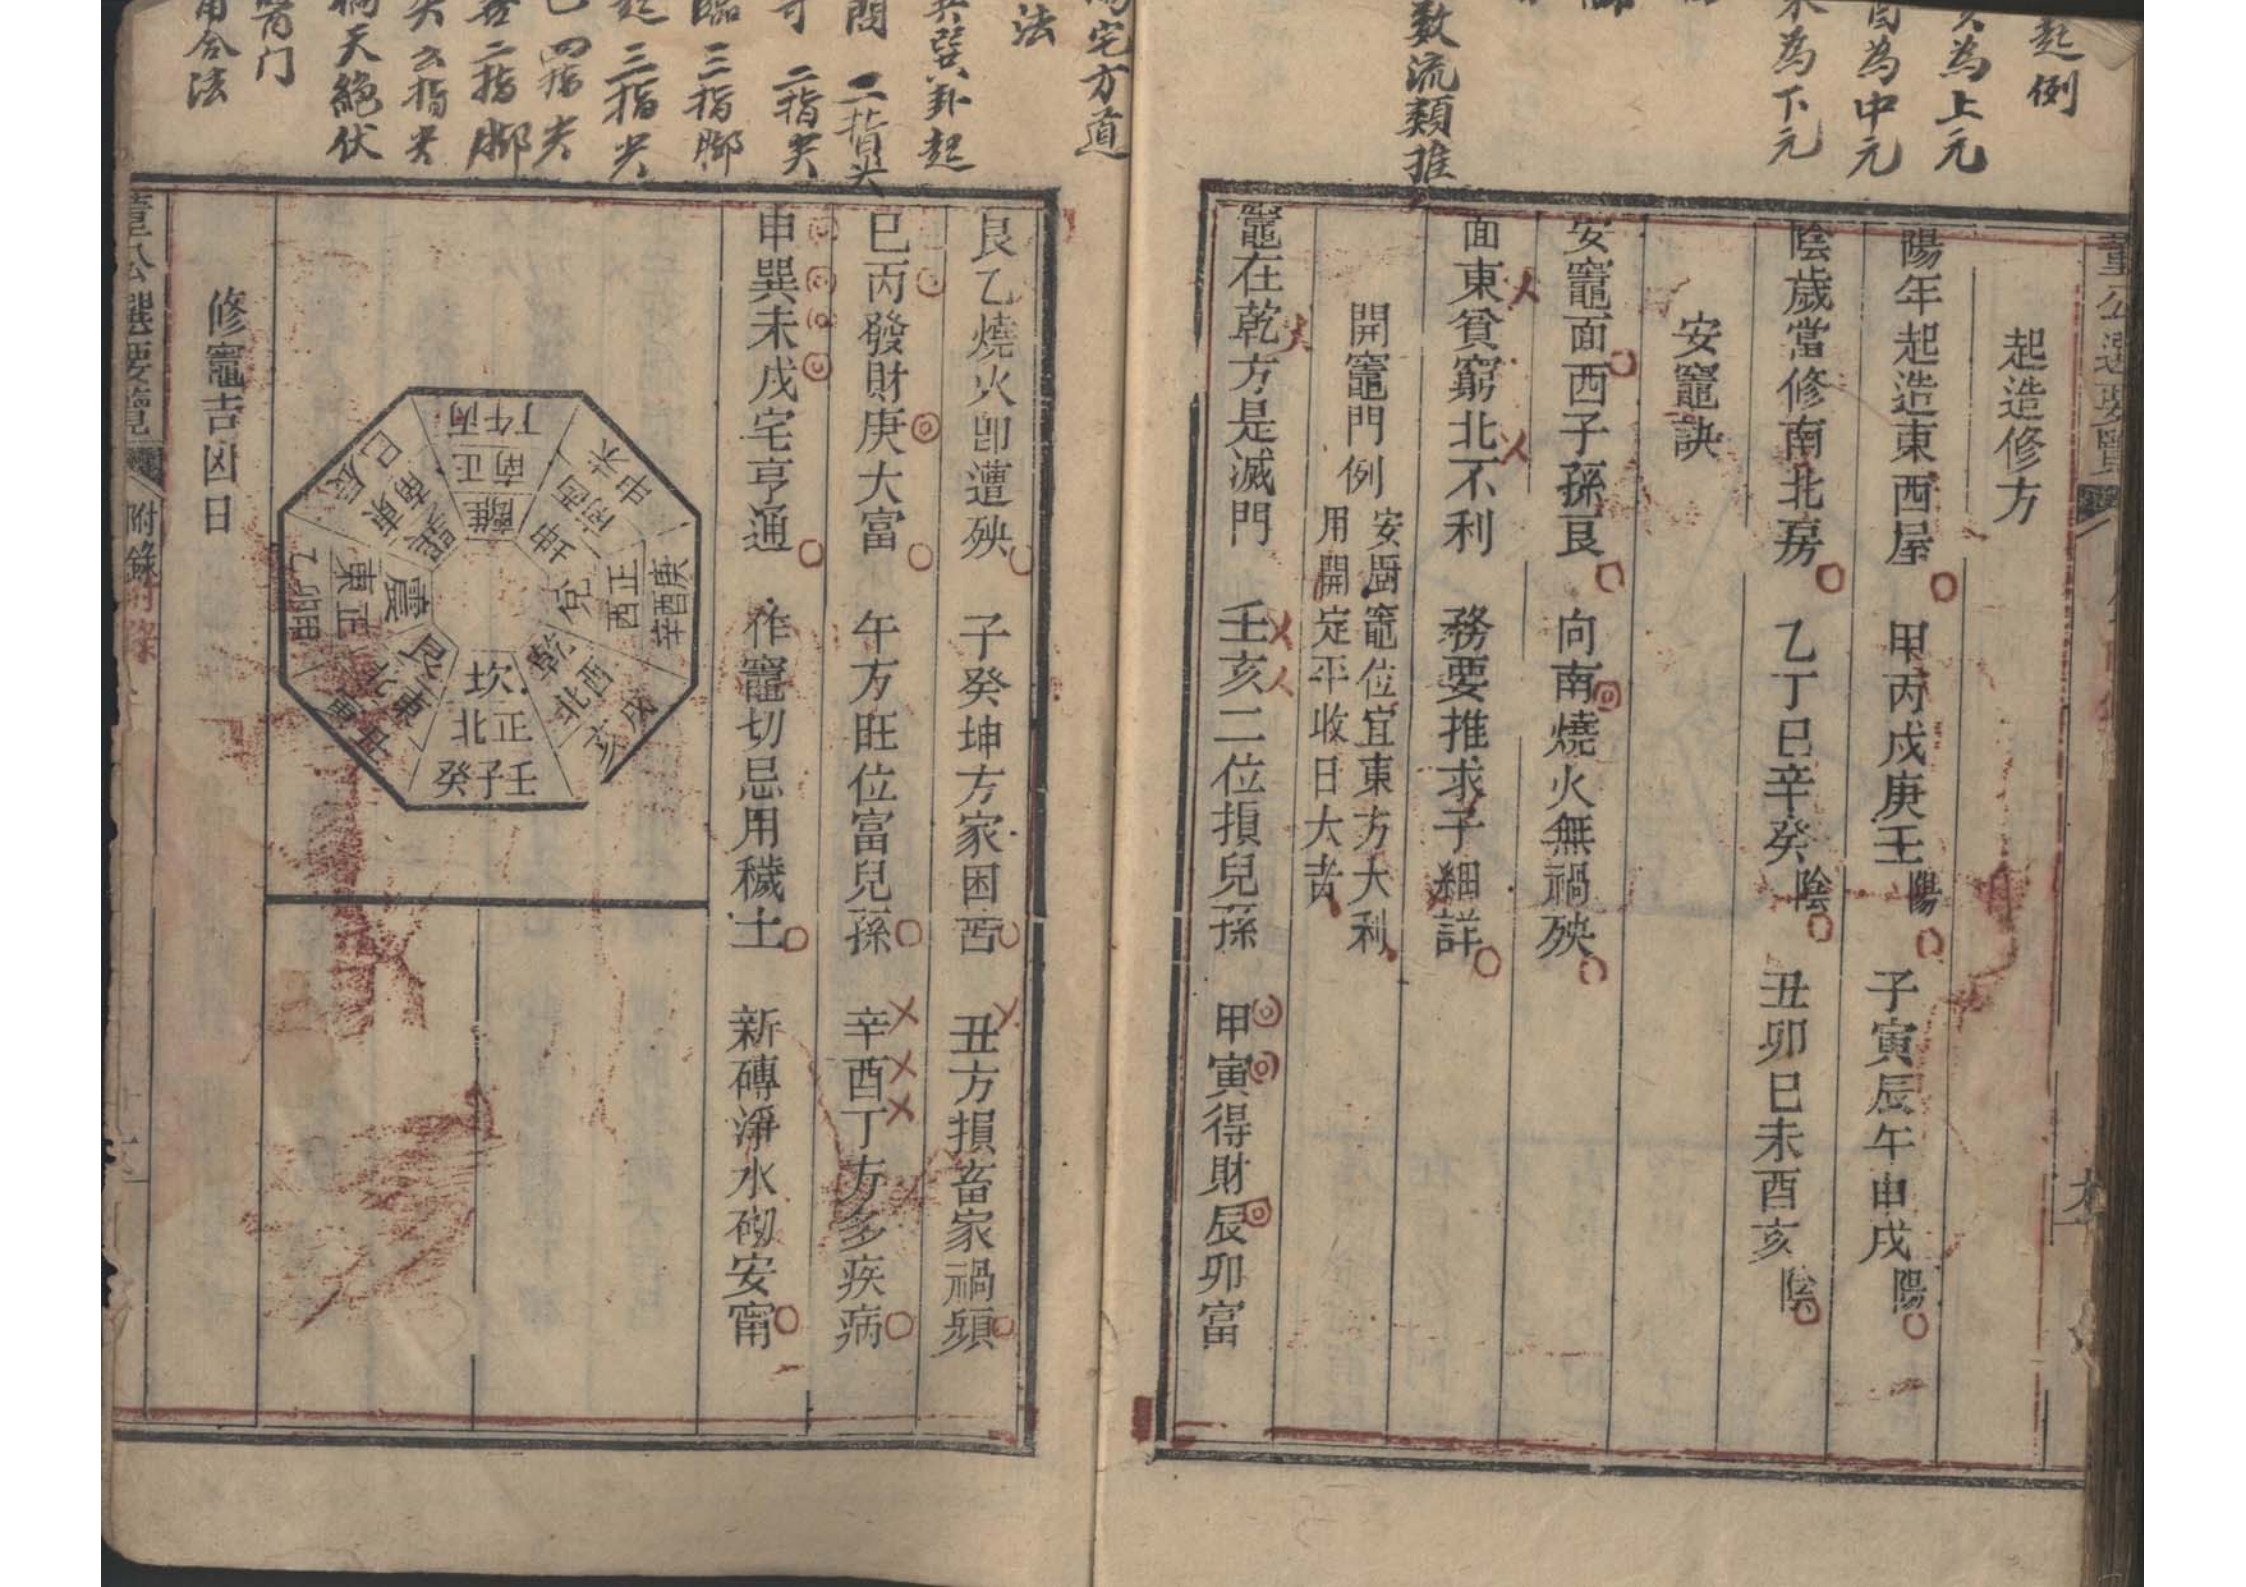 起例
為上元
為中元
為下元
數流類推
宅方道
法
巽卦起
二指尖
二指尖
三指脚
三指尖
四指尖
二指脚
天絕伏
门
合法
起造修方
陽年起造東西屋 甲丙戊庚壬陽 子寅辰午申戌陽
陰歲當修南北房 乙丁巳辛癸陰 丑卯巳未酉亥陰
安竈訣
安竈面西子孫良 向南燒火無禍殃
面東貧窮北不利 務要推求子細詳
開竈門例 安厨竈位宜東方大利
用開定平收日大吉
竈在乾方是滅門 壬亥二位損兒孫 甲寅得財辰卯富
艮乙燒火卽遭殃 子癸坤方家困苦 丑方損畜家禍頻
巳丙發財庚大富 午方旺位富兒孫 辛酉丁方多疾病
申巽未戌宅亨通 作竈切忌用穢土 新磚淨水砌安甯
丁午丙
正南
離
未申
西南
坤
庚酉辛
正西
兌
戌亥
西北
乾
壬子癸
正北
坎
丑寅
東北
艮
甲卯乙
正東
震
辰巳
東南
巽
修竈吉凶日
董公選要覽 附錄